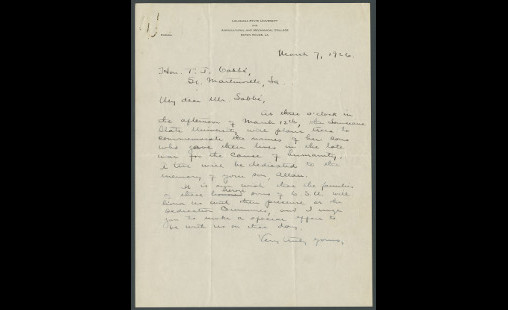 Louisiana State University
and
Agricultural and Mechanical College
Baton Rouge, La.
March 7, 1926.
Hon. T. J. Labbé,
St. Martinville, La.
My dear Mr. Labbé,
At three o'clock in
the afternoon of March 12th, the Louisiana
State University will plant trees to
commemorate the names of her sons
who gave their lives in the late
war for the cause of humanity.
A tree will be dedicated to the
memory of your son,
It is our wish that the families
of these heroic sons of L.S.U. will
honor us with their presence on the
dedication ceremonies, and I urge
you to make a special effort to
be with us on that day.
Very truly yours,